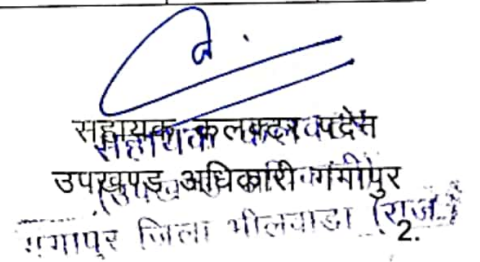 सहायक कलक्टर पदेन
उपखण्ड अधिकारी गंगापुर
गंगापुर जिला भीलवाडा (राज.)
2.